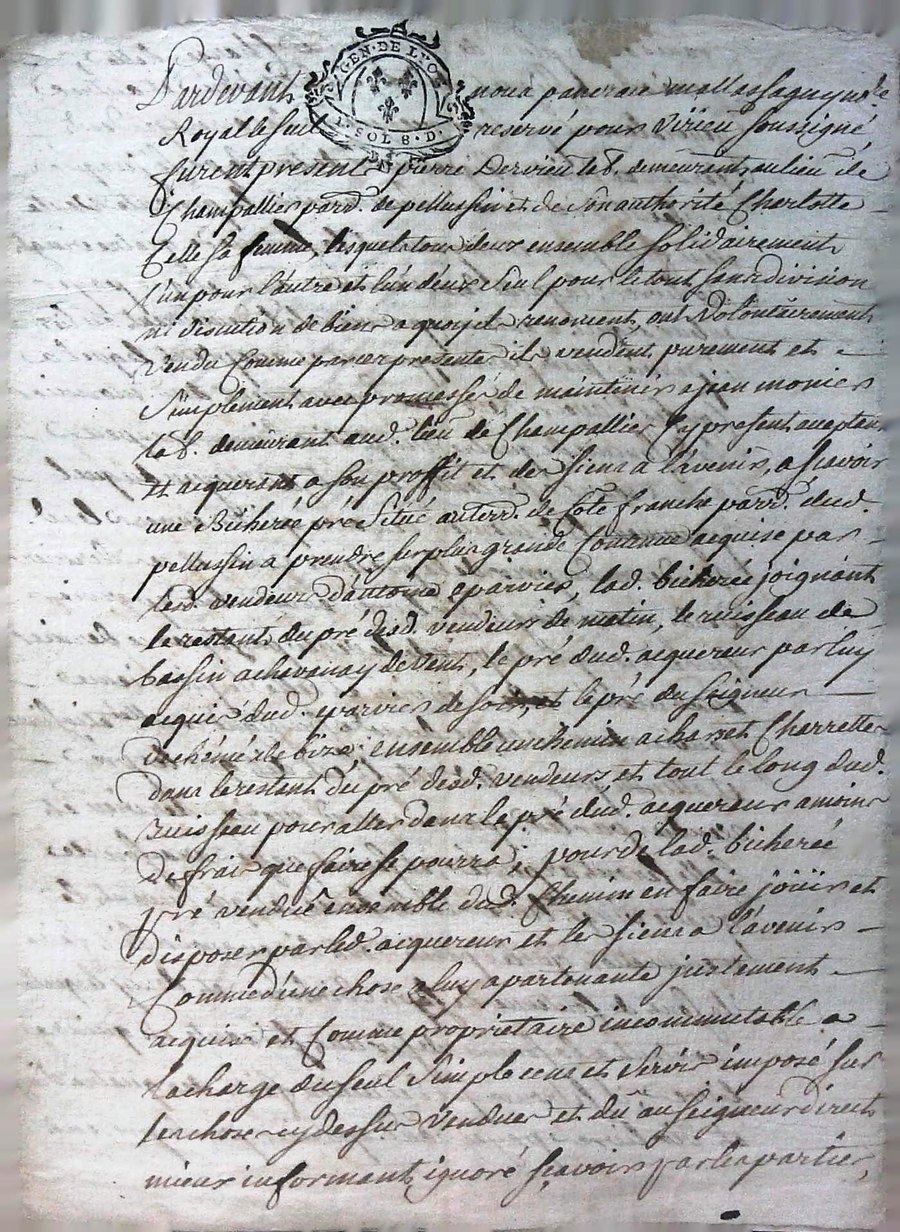 GEN·DE LYON
1·SOL 8·D·
Pardevant nous pancrace mallassagny no.re
Royal le seul reservé pour virieu soussigné
furent present pierre Dervieu le b. demeurant au lieu de
Champallier parr. de pellussin et de son authorité Charlotte
Celle sa femme, lesquels tous deux ensemble solidairement
l'un pour l'autre et l'un d'eux seul pour le tout sans division
ni discution de biens a quoy ils renoncent, ont volontairement
vendu Comme par ces presentes ils vendent purement et
simplement avec promesse de maintenir a jean monier
le b. demeurant aud. lieu de Champallier Cy present acceptant
et aquerant a son proffit et des siens a l'avenir, a scavoir
une Bicherée pré situé au terr. de Cote franche parr. dud.
pellussin a prendre sur plus grande Contenue acquise par
lesd. vendeurs d'antoine eparvier, lad. bicherée joignant
le restant du pré desd. vendeurs de matin, le ruisseau de
bassin a chavanay de vent, le pré dud. acquereur par luy
acquis dud. eparvier de soir, et le pré du seigneur
de bize; ensemble un chemin a char et Charrette
dans le restant du pré desd. vendeurs et tout le long dud.
ruisseau pour aller dans le pré dud. acquereur a moins
de frais que faire se pourra; pour de lad. bicherée
pré vendue ensemble dud. Chemin en faire joüir et
disposer par led. acquereur et les siens a l'avenir
Comme d'une chose a luy apartenante justement
acquise et Comme proprietaire incommutable a
la charge du seul simple cens et servis imposé sur
les choses cy dessus vendues et dû au seigneur direct
mieux informant, ignoré scavoir par les parties,